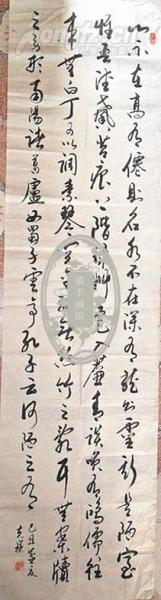 山不在高有僊則名水不在深有龍則靈斯是陋室
惟吾德馨苔痕上階綠草色入簾青談笑有鴻儒往
來無白丁可以調素琴閱金經無絲竹之亂耳無案牘
之勞形南陽諸葛廬西蜀子雲亭孔子云何陋之有 己丑孟夏